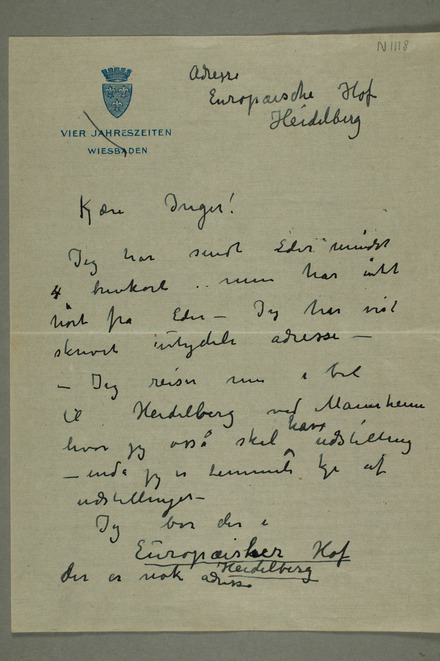 N 1118
Adresse
Europæische Hof
Heidelberg
VIER JAHRESZEITEN
WIESBADEN
Kjære Inger!
Jeg har sendt Eder mindst
4 brevkort .. men har intet
hørt fra Eder – Jeg har vist
skrevet utydelig adresse –
– Jeg reiser nu i bil
til Heidelberg ved Mannheim
hvor jeg også skal have udstilling
– enda jeg er temmelig kje af
udstillinger –
Jeg bor der i
Europæischer Hof
Heidelberg
der er nok adresse